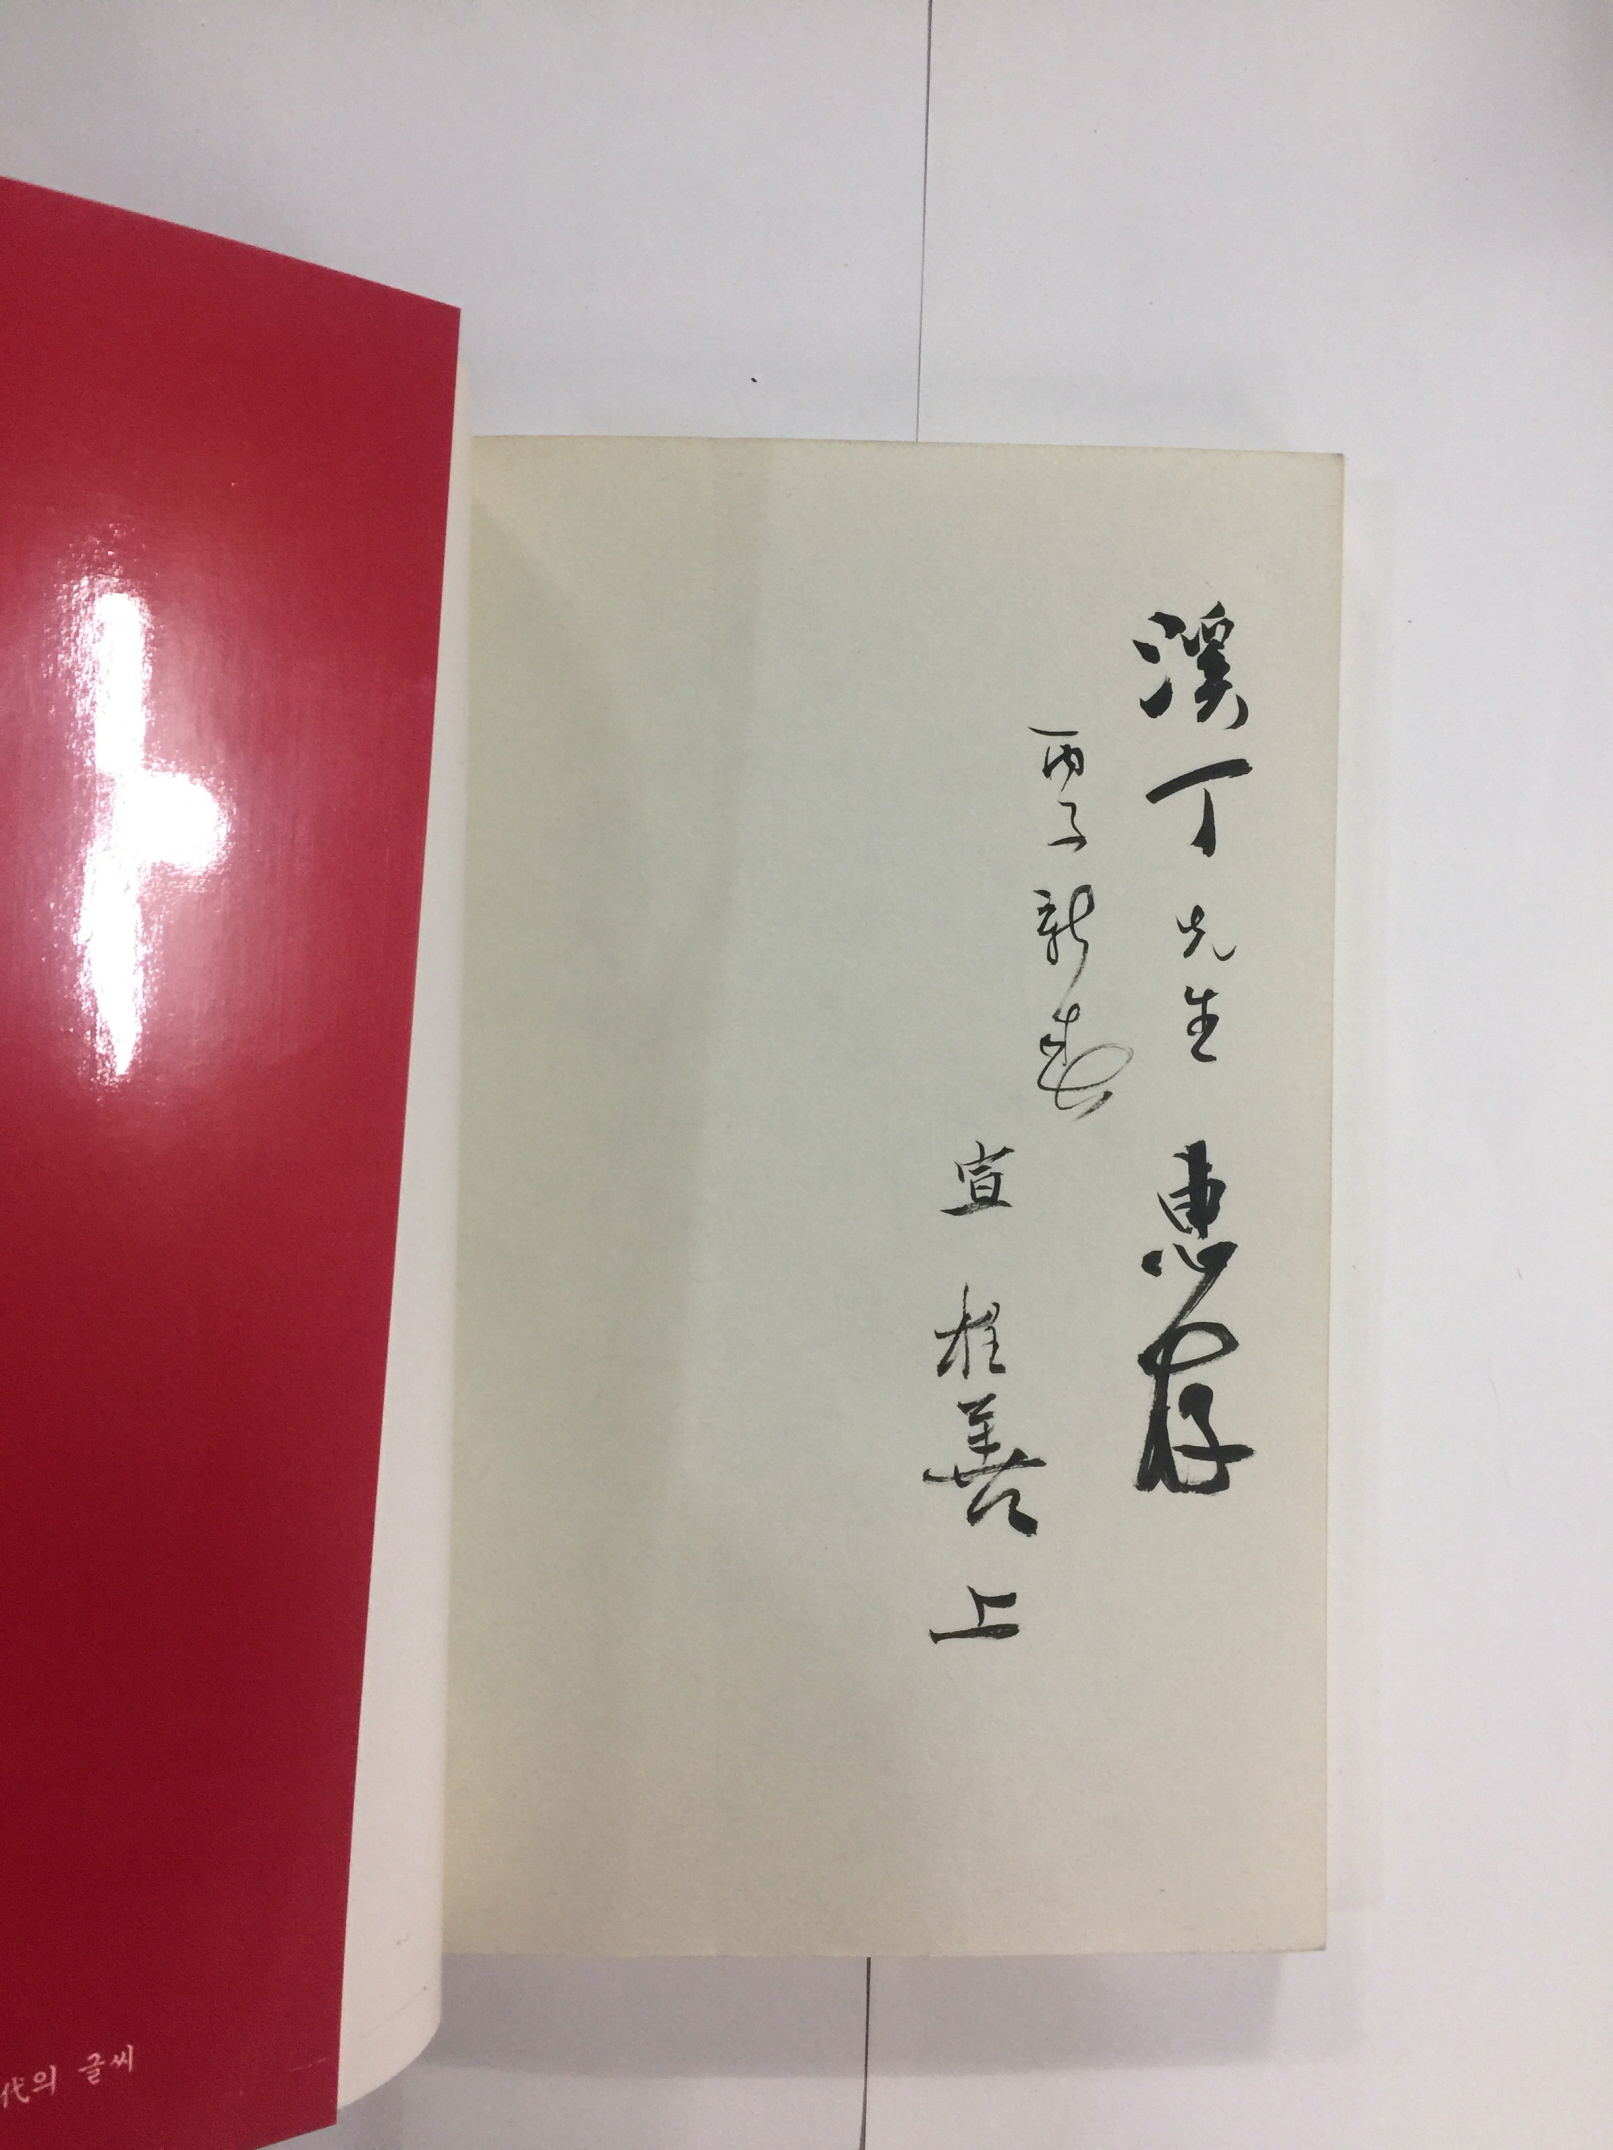 溪丁先生 惠存
丙子新春
宣柱善 上
代의 글씨